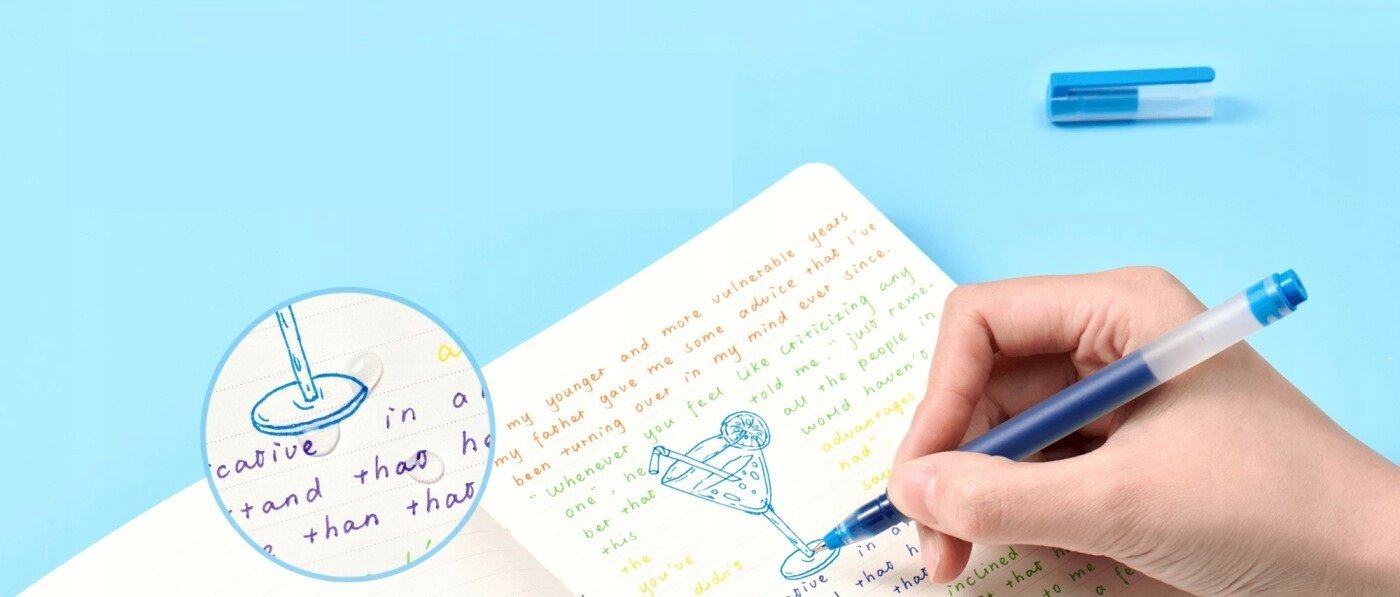 my younger and more vulnerable years
my father gave me some advice that I've
been turning over in my mind ever since.
"Whenever you feel like criticizing any
one", he told me." just reme-
bet that all the people in
this world haven't
the advantages
you've had".
didn't say
in a
that h
that
inclined
that
to me
a fe
a
cative in a
tand that he
than that